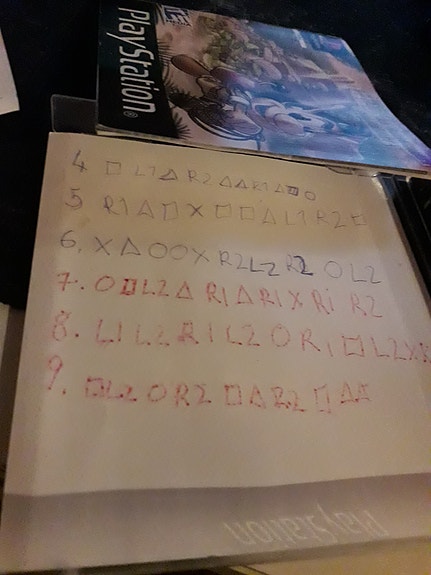 PlayStation®
4 □ L1 △ R2 △ △ R1 △ □ ○
5 R1 △ □ X □ □ △ L1 R2 □
6. X △ ○ ○ X R2 L2 R2 ○ L2
7. ○ □ L2 △ R1 △ R1 X R1 R2
8. L1 L2 R1 L2 ○ R1 □ L2 X
9. □ L2 ○ R2 □ △ R2 □ △ △
PlayStation